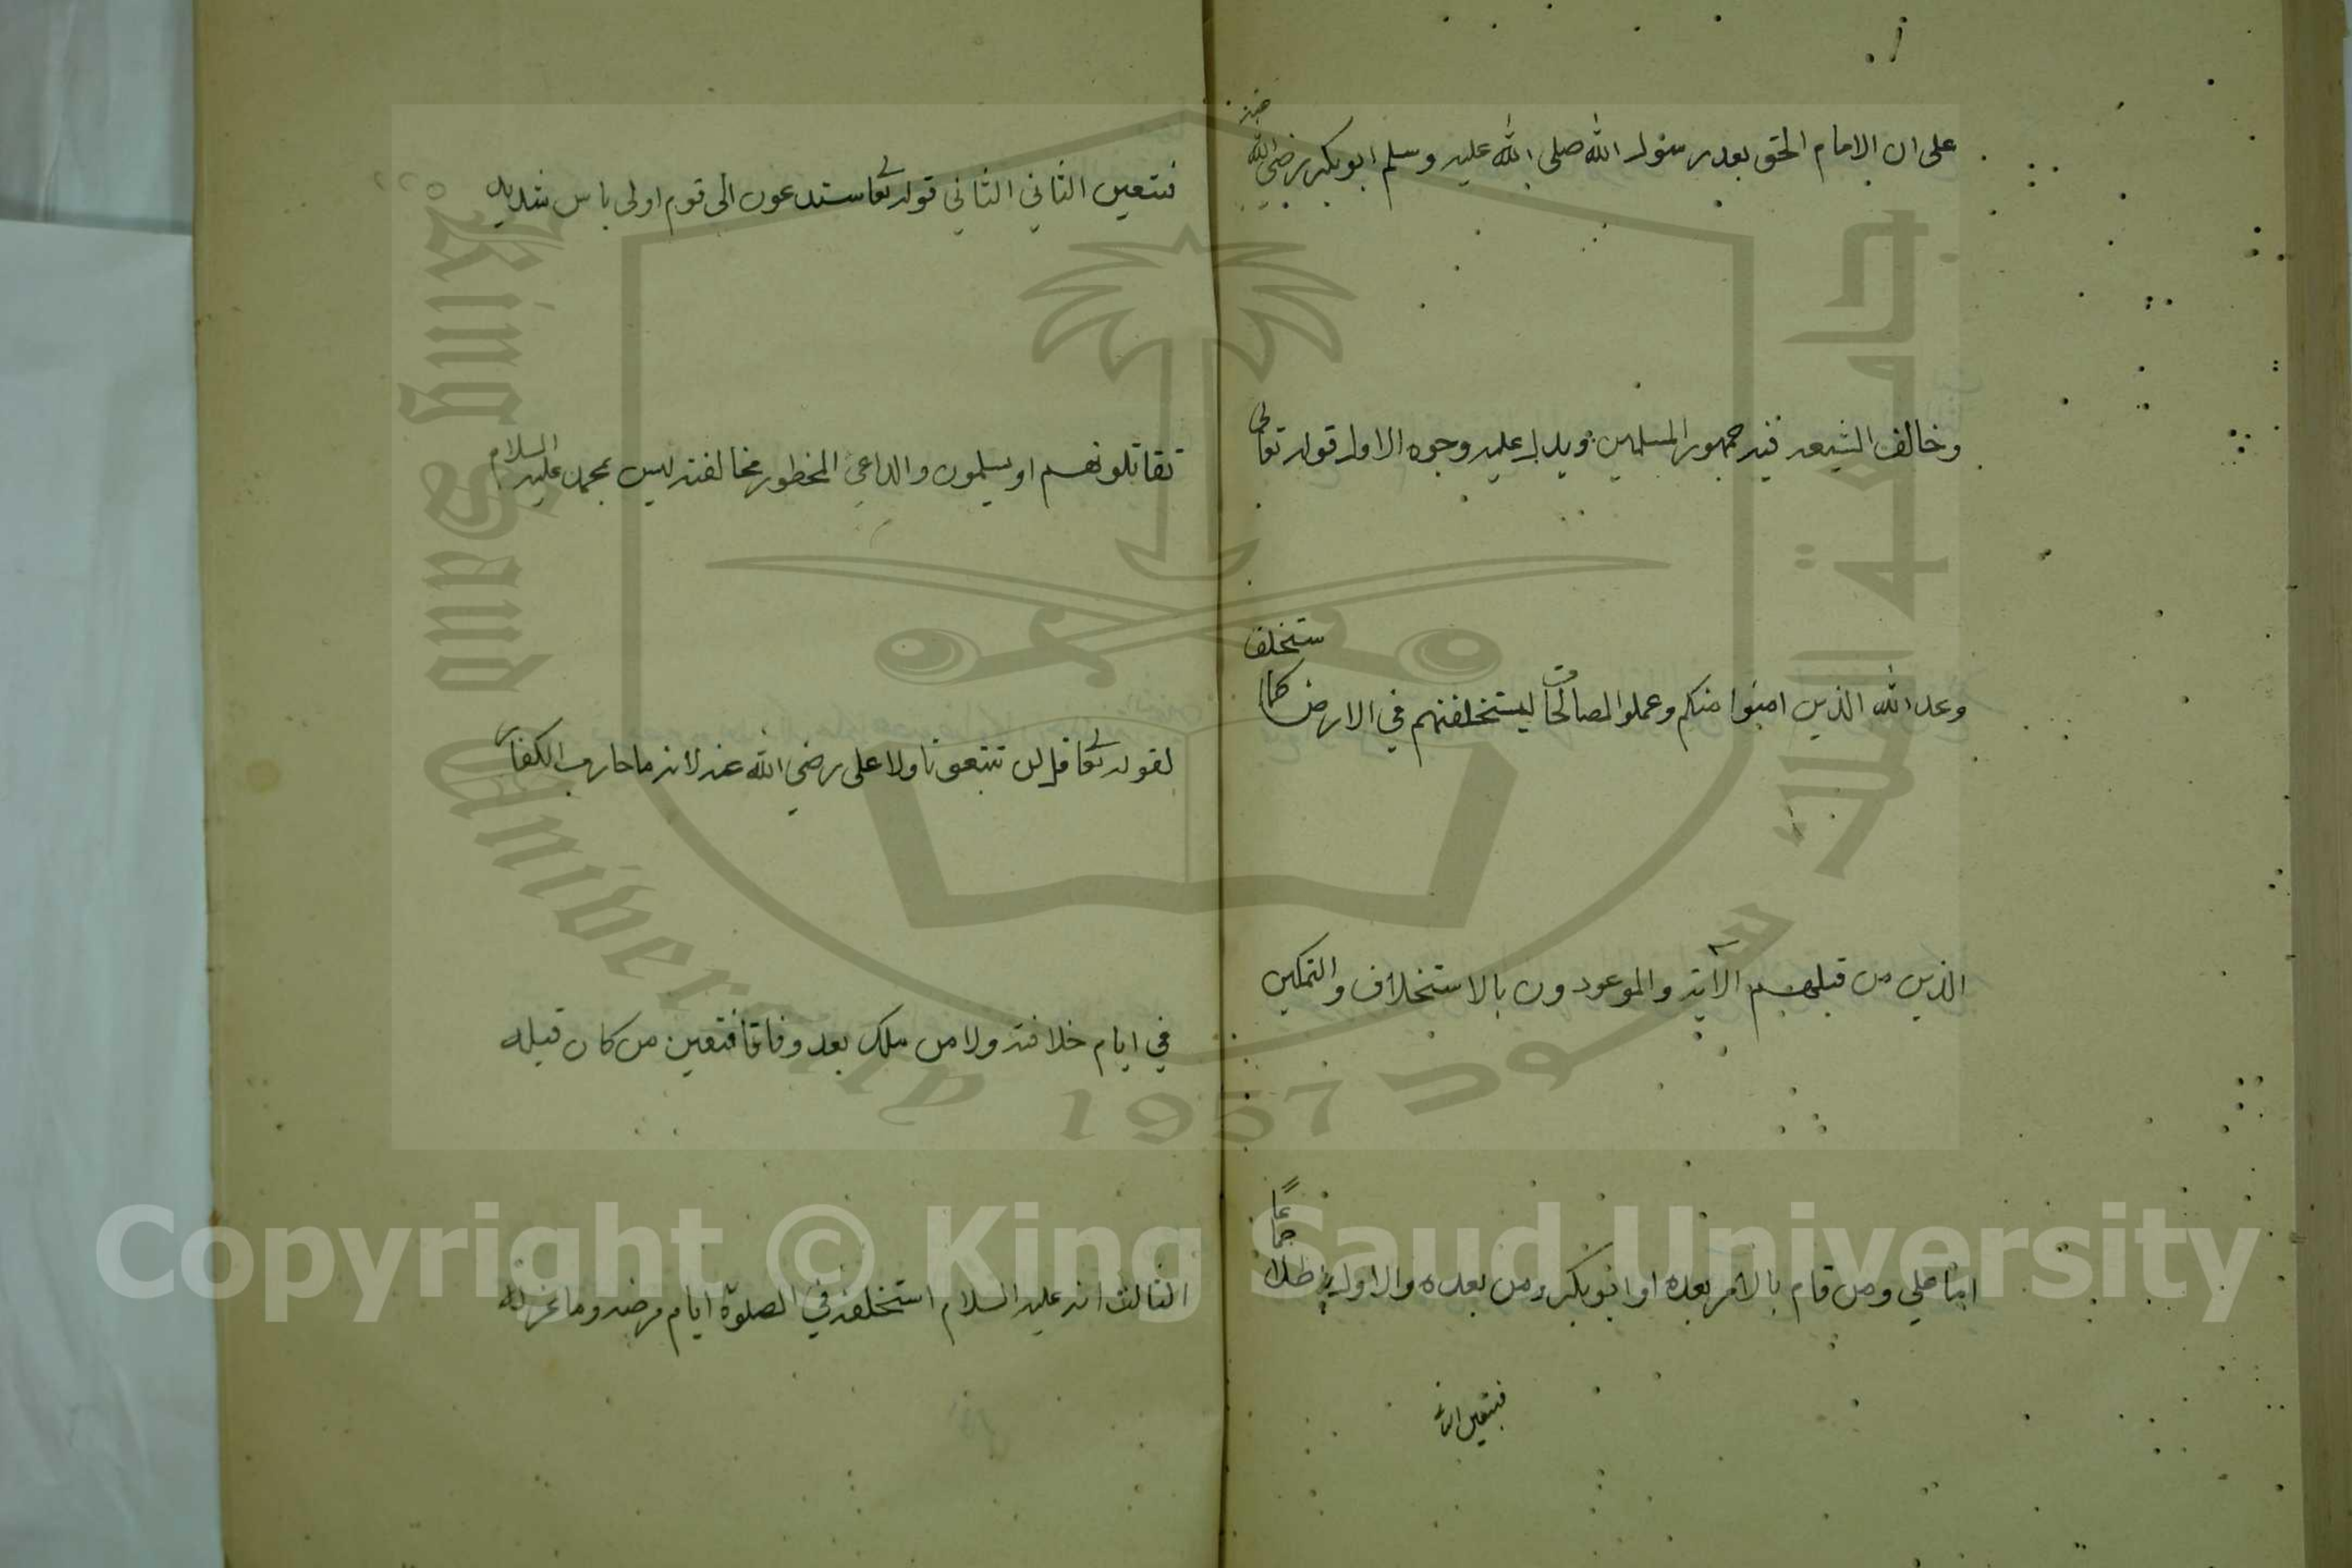 على ان الامام الحق بعد رسول الله صلى الله عليه وسلم ابو بكر رضي الله عنه
وخالف الشيعة فيه جمهور المسلمين ويدل عليه وجوه الاول قوله تعالى
وعد الله الذين امنوا منكم وعملوا الصالحات ليستخلفنهم في الارض كما استخلف
الذين من قبلهم الآية والموعودون بالاستخلاف والتمكين
اما علي ومن قام بالامر بعده او ابو بكر ومن بعده والاول باطل اجماعًا
فيتعين الثا
فيتعين الثاني الثاني قوله تعالى ستدعون الى قوم اولى باس شديد
تقاتلونهم او يسلمون والداعي المحظور مخالفته ليس بمحمد عليه السلام
لقوله تعالى قل لن تتبعونا ولا علي رضي الله عنه لانه ما حارب الكفار
في ايام خلافته ولا من ملك بعد وفاقا فتعين من كان قبله
الثالث انه عليه السلام استخلفه في الصلوة ايام مرضه وما عزله
King Saud University
1957
جامعة الملك سعود
Copyright © King Saud University